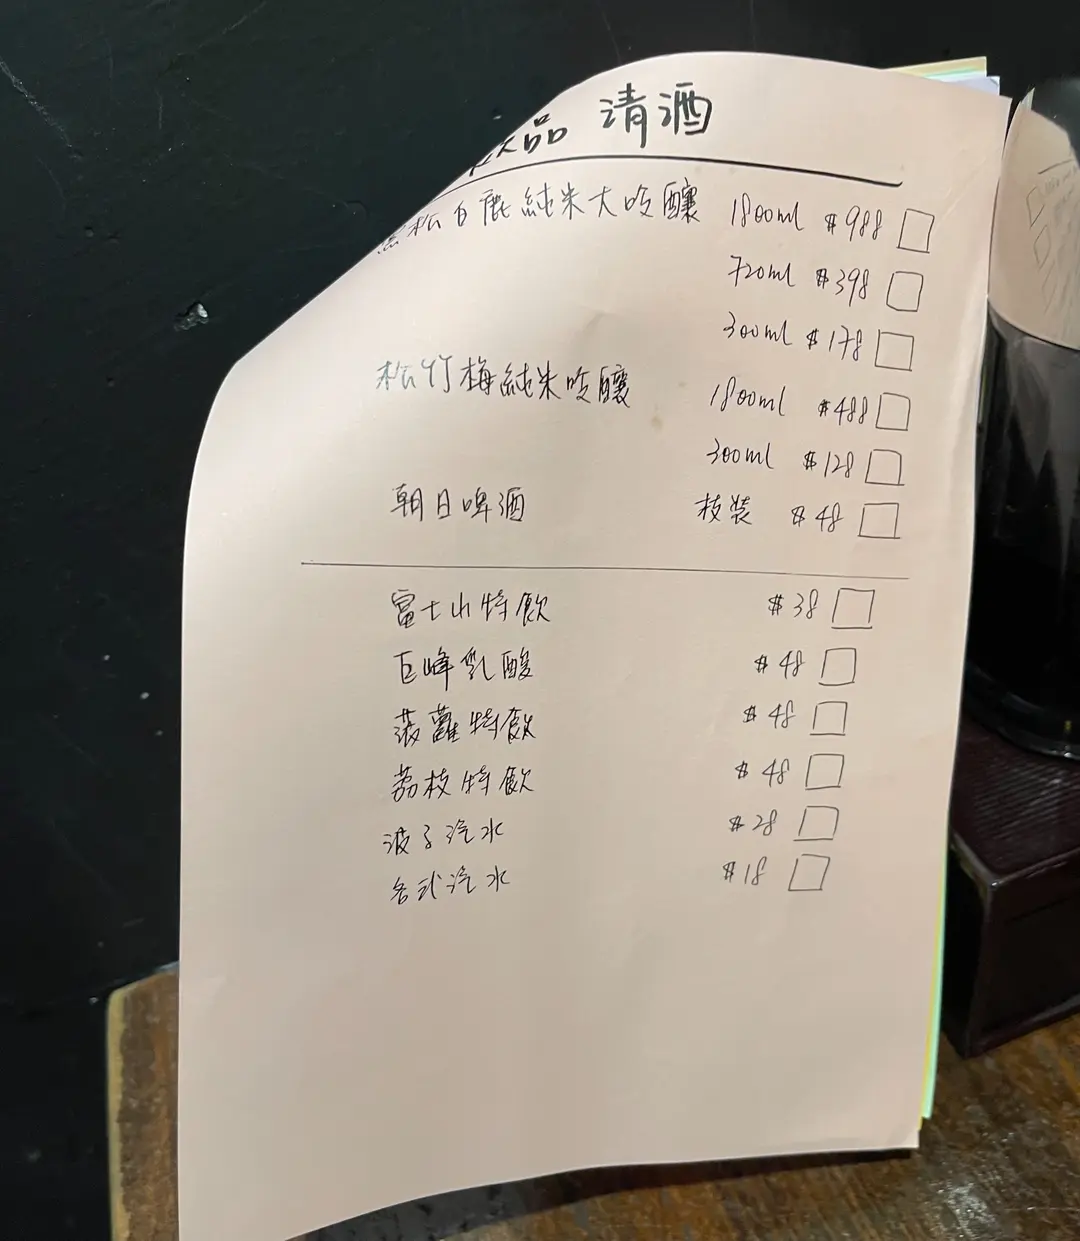 飲品 清酒
黑松白鹿純米大吟釀 1800ml $988
720ml $398
300ml $178
松竹梅純米吟釀 1800ml $488
300ml $128
朝日啤酒 枝裝 $48
富士山特飲 $38
巨峰乳酸 $48
菠蘿特飲 $48
荔枝特飲 $48
波子汽水 $28
各式汽水 $18